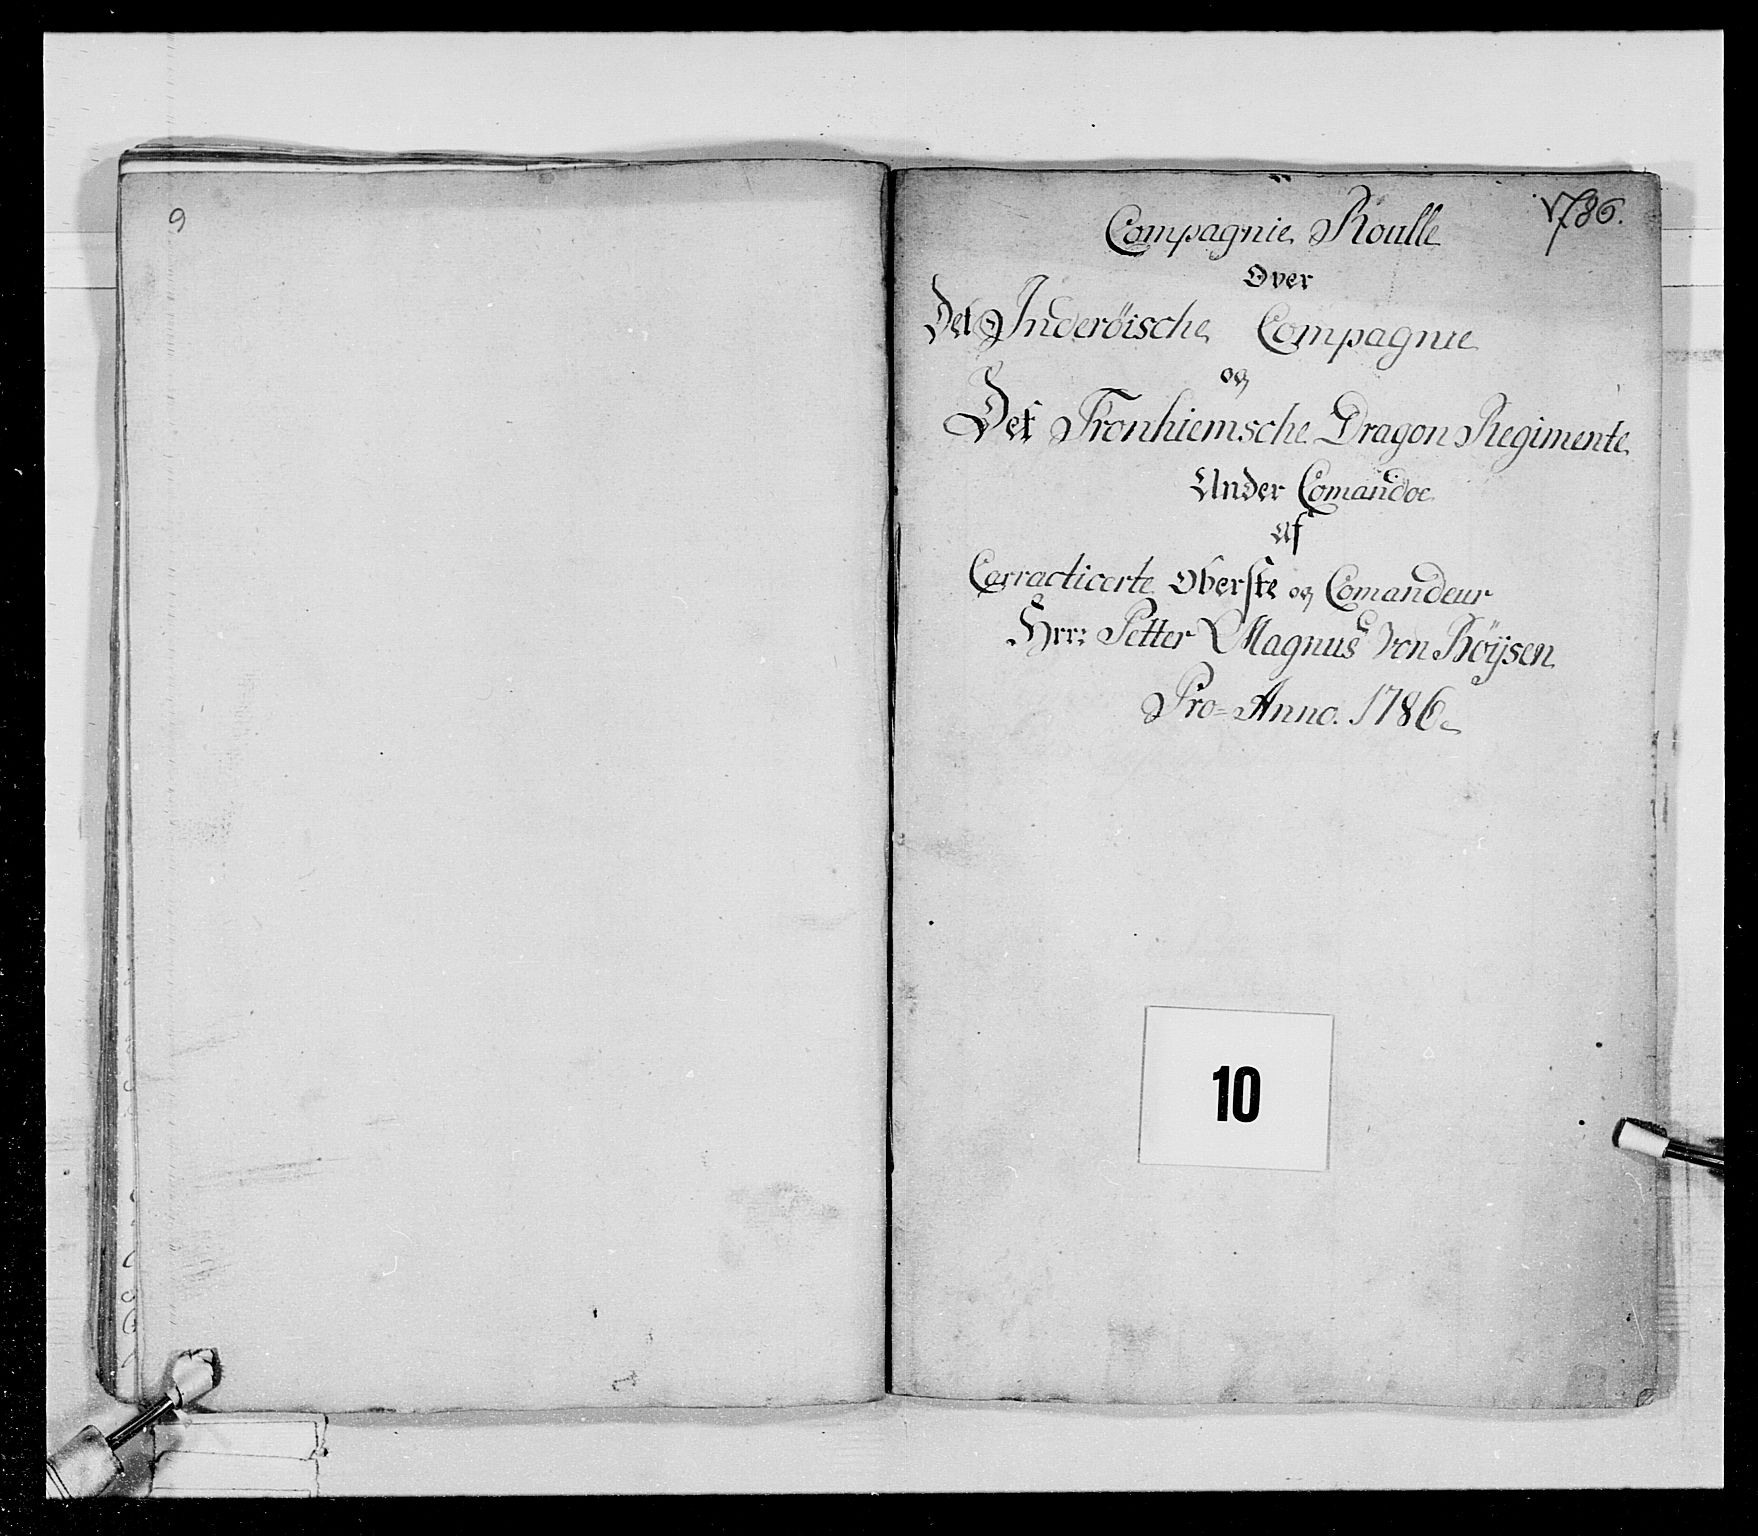 9
1786.
Compagnie Roulle
Over
Det Inderöische Compagnie
og
Det Tronhiemsche Dragon Regimente
Under Comandoe
Af
Carracticerte Oberste og Comandeur
Hrr: Petter Magnus von Böysen
Pro= Anno. 1786
10